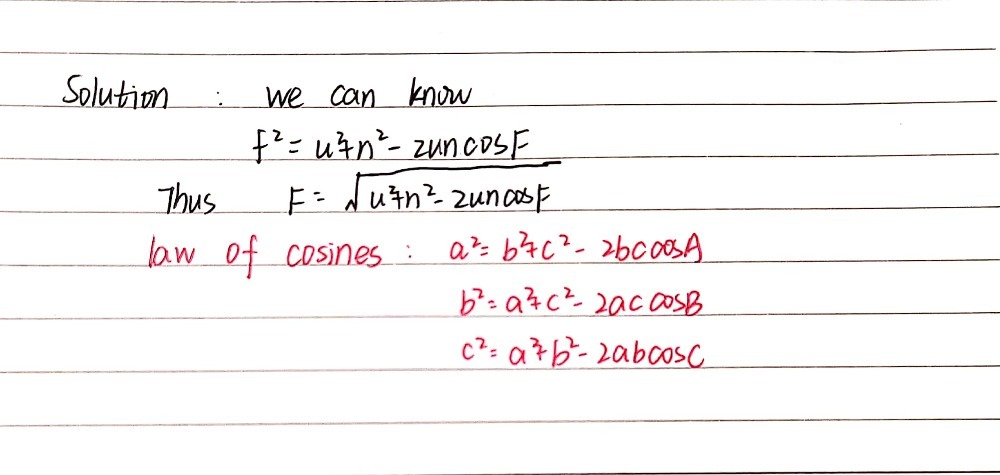 Solution : we can know
f² = u²+n² - 2un cosF
Thus F = √u²+n² - 2un cosF
law of cosines : a² = b²+c² - 2bc cosA
b² = a²+c² - 2ac cosB
c² = a²+b² - 2ab cosC